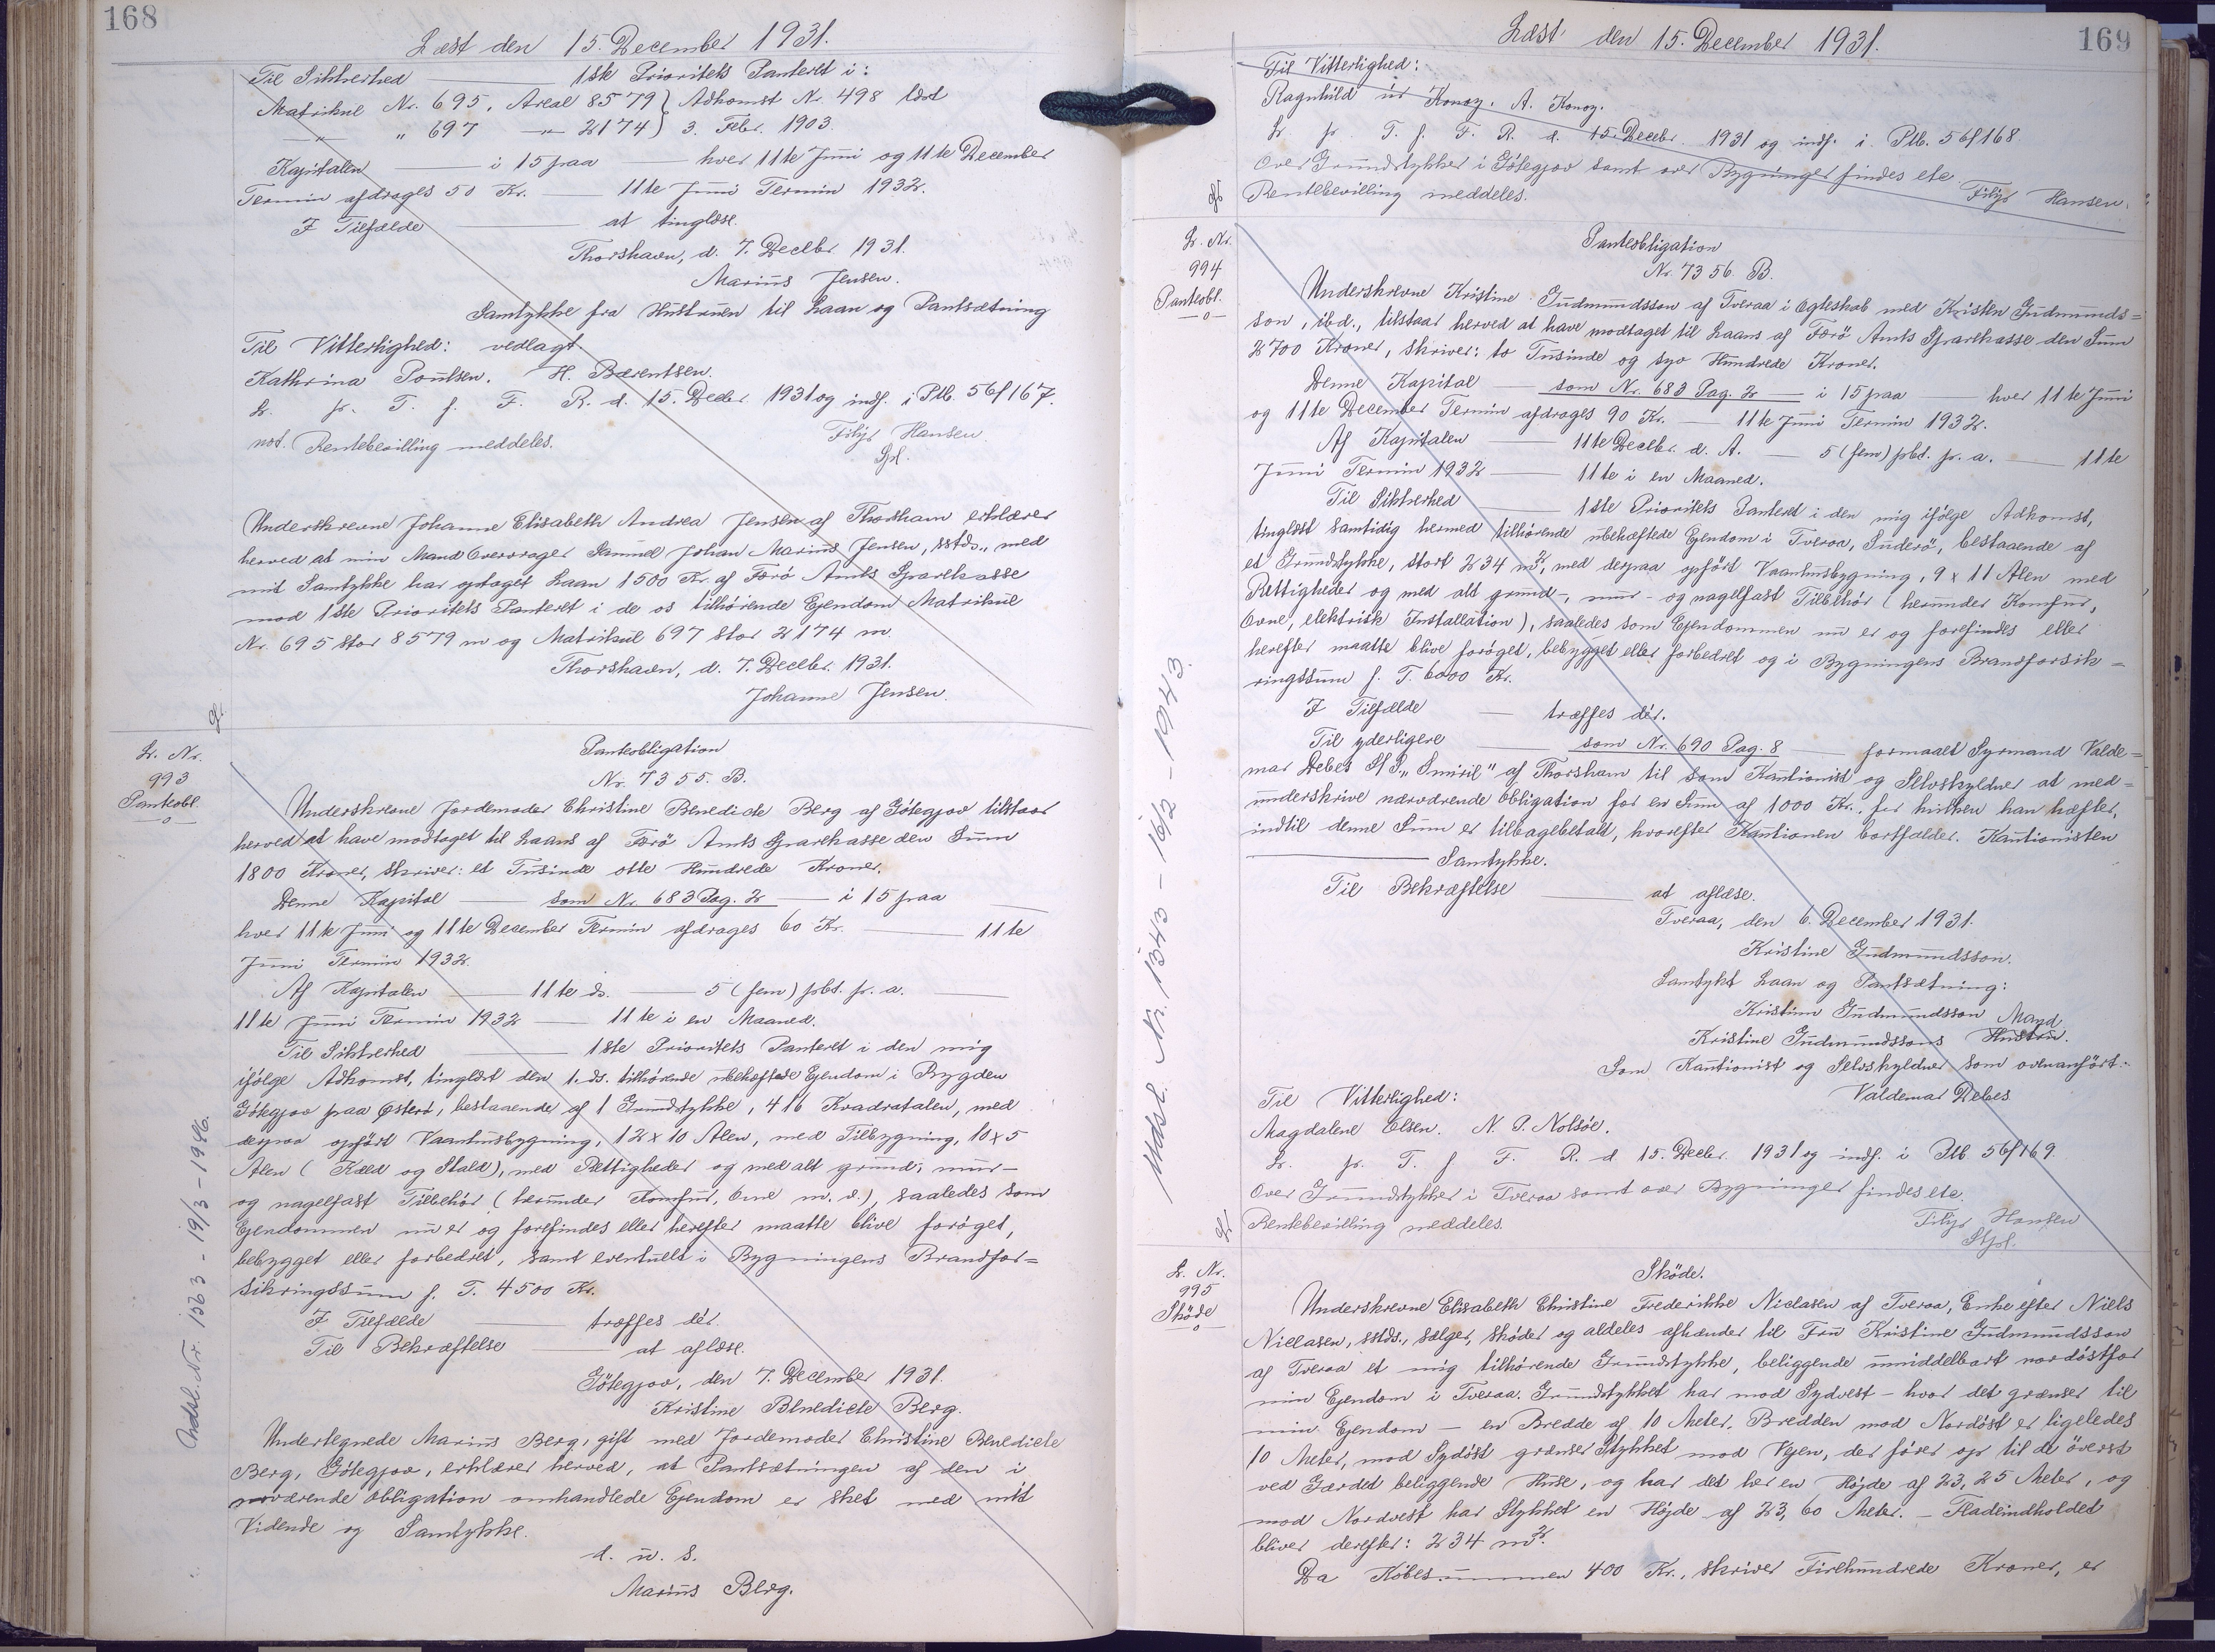 168
Læst den 15. December 1931.
Til Sikkerhed — 1ste Prioritets Panteret i:
Matrikul Nr. 695, Areal 8579 } Adkomst Nr. 498 læst
—„— „ 697 —„— 2174 } 3. Febr. 1903.
Kapitalen — i 15 paa — hver 11te Juni og 11te December
Termin afdrages 50 Kr. — 11te Juni Termin 1932.
I Tilfælde — at tinglæse.
Thorshavn, d. 7. Decbr 1931.
Marius Jensen.
Samtykke fra Hustruen til Laan og Pantsætning
Til Vitterlighed: vedlagt
Kathrina Poulsen. H. Bærentsen.
L. pr. T. f. F. R. d. 15. Decbr 1931 og indf. i Ptb. 56f167.
not. Rentebevilling meddeles. Filip Hansen.
Spl.
Underskrevne Johanne Elisabeth Andrea Jensen af Thorshavn erklærer
herved at min Mand Overdrager Samuel Johan Marius Jensen, sstds., med
mit Samtykke har optaget Laan 1500 Kr. af Færö Amts Sparekasse
mod 1ste Prioritets Panteret i de os tilhørende Ejendom Matrikul
Nr. 695 stor 8579 m og Matrikul 697 stor 2174 m.
Thorshavn, d. 7. Decbr. 1931.
Johanne Jensen.
L. Nr.
993
Panteobl.
Panteobligation
Nr. 7355. B.
Underskrevne Jordemoder Christine Benedicte Berg af Götegjov tilstaar
herved at have modtaget til Laans af Færö Amts Sparekasse den Sum
1800 Kroner, skriver: et Tusinde otte Hundrede Kroner.
Denne Kapital — som Nr. 683 Pag. 2 — i 15 paa —
hver 11te Juni og 11te December Termin afdrages 60 Kr. — 11te
Juni Termin 1932.
Af Kapitalen — 11te ds. — 5 (fem) pbt. p. a. —
11te Juni Termin 1932 — 11te i en Maaned.
Til Sikkerhed — 1ste Prioritets Panteret i den mig
ifølge Adkomst, tinglæst den 1. ds. tilhørende ubehæftede Ejendom i Bygden
Götegjov paa Østerö, bestaaende af 1 Grundstykke, 416 Kvadratalen, med
derpaa opført Vaaningsbygning, 12 x 10 Alen, med Tilbygning, 10 x 5
Alen (Kæld og Stald), med Rettigheder og med alt grund-, mur-
og nagelfast Tilbehör (herunder Komfur, Ovne m. v.), saaledes som
Ejendommen nu er og forefindes eller herefter maatte blive forøget,
bebygget eller forbedret, samt eventuelt i Bygningens Brandfor=
sikringssum p. T. 4500 Kr.
I Tilfælde — træffes dér.
Til Bekræftelse — at aflæse.
Götegjov, den 7. December 1931.
Kristine Benedicte Berg.
Undertegnede Marius Berg, gift med Jordemoder Christine Benedicte
Berg, Götegjov, erklærer herved, at Pantsætningen af den i
nærværende Obligation omhandlede Ejendom er sket med mit
Vidende og Samtykke.
d. u. s.
Marius Berg.
Udsl. Nr. 1363 - 19/3 - 1946.
169
Læst den 15. December 1931.
Til Vitterlighed:
Ragnhild Konoy. A. Konoy.
L. pr. T. f. F. R. d. 15. Decbr. 1931 og indf. i Ptb. 56f168
Over Grundstykker i Götegjov samt over Bygninger findes etc
Rentebevilling meddeles. Filip Hansen.
L. Nr.
994
Panteobl.
Panteobligation
Nr. 7356. B.
Underskrevne Kristine Gudmundsson af Tveraa i Ægteskab med Kristen Gudmunds=
son, ibd., tilstaar herved at have modtaget til Laans af Færö Amts Sparekasse den Sum
2700 Kroner, skriver: to Tusinde og syv Hundrede Kroner.
Denne Kapital — som Nr. 683 Pag. 2 — i 15 paa — hver 11te Juni
og 11te December Termin afdrages 90 Kr. — 11te Juni Termin 1932.
Af Kapitalen — 11te Decbr. d. A. — 5 (fem) pbt. p. a. — 11te
Juni Termin 1932 — 11te i en Maaned.
Til Sikkerhed — 1ste Prioritets Panteret i den mig ifølge Adkomst,
tinglæst samtidig hermed tilhørende ubehæftede Ejendom i Tveraa, Suderö, bestaaende af
et Grundstykke, stort 234 m², med derpaa opført Vaaningsbygning, 9 x 11 Alen med
Rettigheder og med alt grund-, mur- og nagelfast Tilbehör (herunder Komfur,
Ovne, elektrisk Installation), saaledes som Ejendommen nu er og forefindes eller
herefter maatte blive forøget, bebygget eller forbedret og i Bygningens Brandforsik=
ringssum p. T. 6000 Kr.
I Tilfælde — træffes dér.
Til yderligere — som Nr. 690 Pag. 8 — formaaet Styrmand Valde=
mar Debes S/S „Smiril" af Thorshavn til som Kautionist og Selvskyldner at med=
underskrive nærværende Obligation for en Sum af 1000 Kr., for hvilken han hæfter,
indtil denne Sum er tilbagebetalt, hvorefter Kautionen bortfalder. Kautionisten
— Samtykke.
Til Bekræftelse — at aflæse.
Tveraa, den 6. December 1931.
Kristine Gudmundsson.
Samtykt Laan og Pantsætning:
Kristinn Gudmundsson Mand
Kristine Gudmundssons Hustru.
Som Kautionist og Selvskyldner som ovenanført:
Valdemar Debes
Til Vitterlighed:
Magdalene Olsen. N. P. Nolsöe.
L. pr. T. f. F. R. d. 15. Decbr. 1931 og indf. i Ptb 56f169.
Over Grundstykker i Tveraa samt over Bygninger findes etc.
Rentebevilling meddeles. Filip Hansen
Spl.
Udsl. Nr. 1343 - 16/2 - 1943.
L. Nr.
995
Sköde
Sköde.
Underskrevne Elisabeth Christine Frederikke Niclasen af Tveraa, Enke efter Niels
Niclasen, sstds., sælger, sköder og aldeles afhænder til Fru Kristine Gudmundsson
af Tveraa et mig tilhørende Grundstykke, beliggende umiddelbart nordöstfor
min Ejendom i Tveraa. Grundstykket har mod Sydvest - hvor det grænser til
min Ejendom - en Bredde af 10 Meter. Bredden mod Nordöst er ligeledes
10 Meter, mod Sydöst grænser Stykket mod Vejen, der fører op til de överst
ved Gærdet beliggende Huse, og har det her en Højde af 23,25 Meter, og
mod Nordvest har Stykket en Højde af 23,60 Meter. - Fladeindholdet
bliver derefter: 234 m².
Da Købesummen 400 Kr., skriver Firehundrede Kroner, er